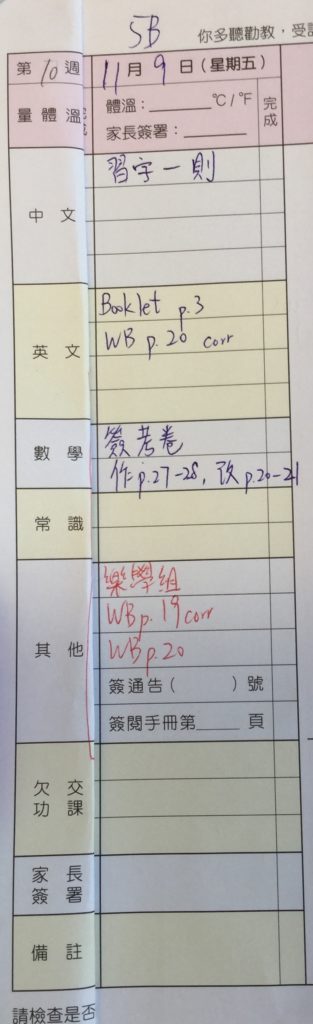 5B
你多聽勸教,受
第10週 11月9日(星期五)
量體溫 體溫:______℃/℉ 完成
家長簽署:______
中文 習字一則
英文 Booklet p.3
WB p.20 corr
數學 簽考卷
作p.27-28, 改p.20-21
常識
其他 樂學組
WB p.19 corr
WB p.20
簽通告( )號
簽閱手冊第____頁
欠交功課
家長簽署
備註
請檢查是否